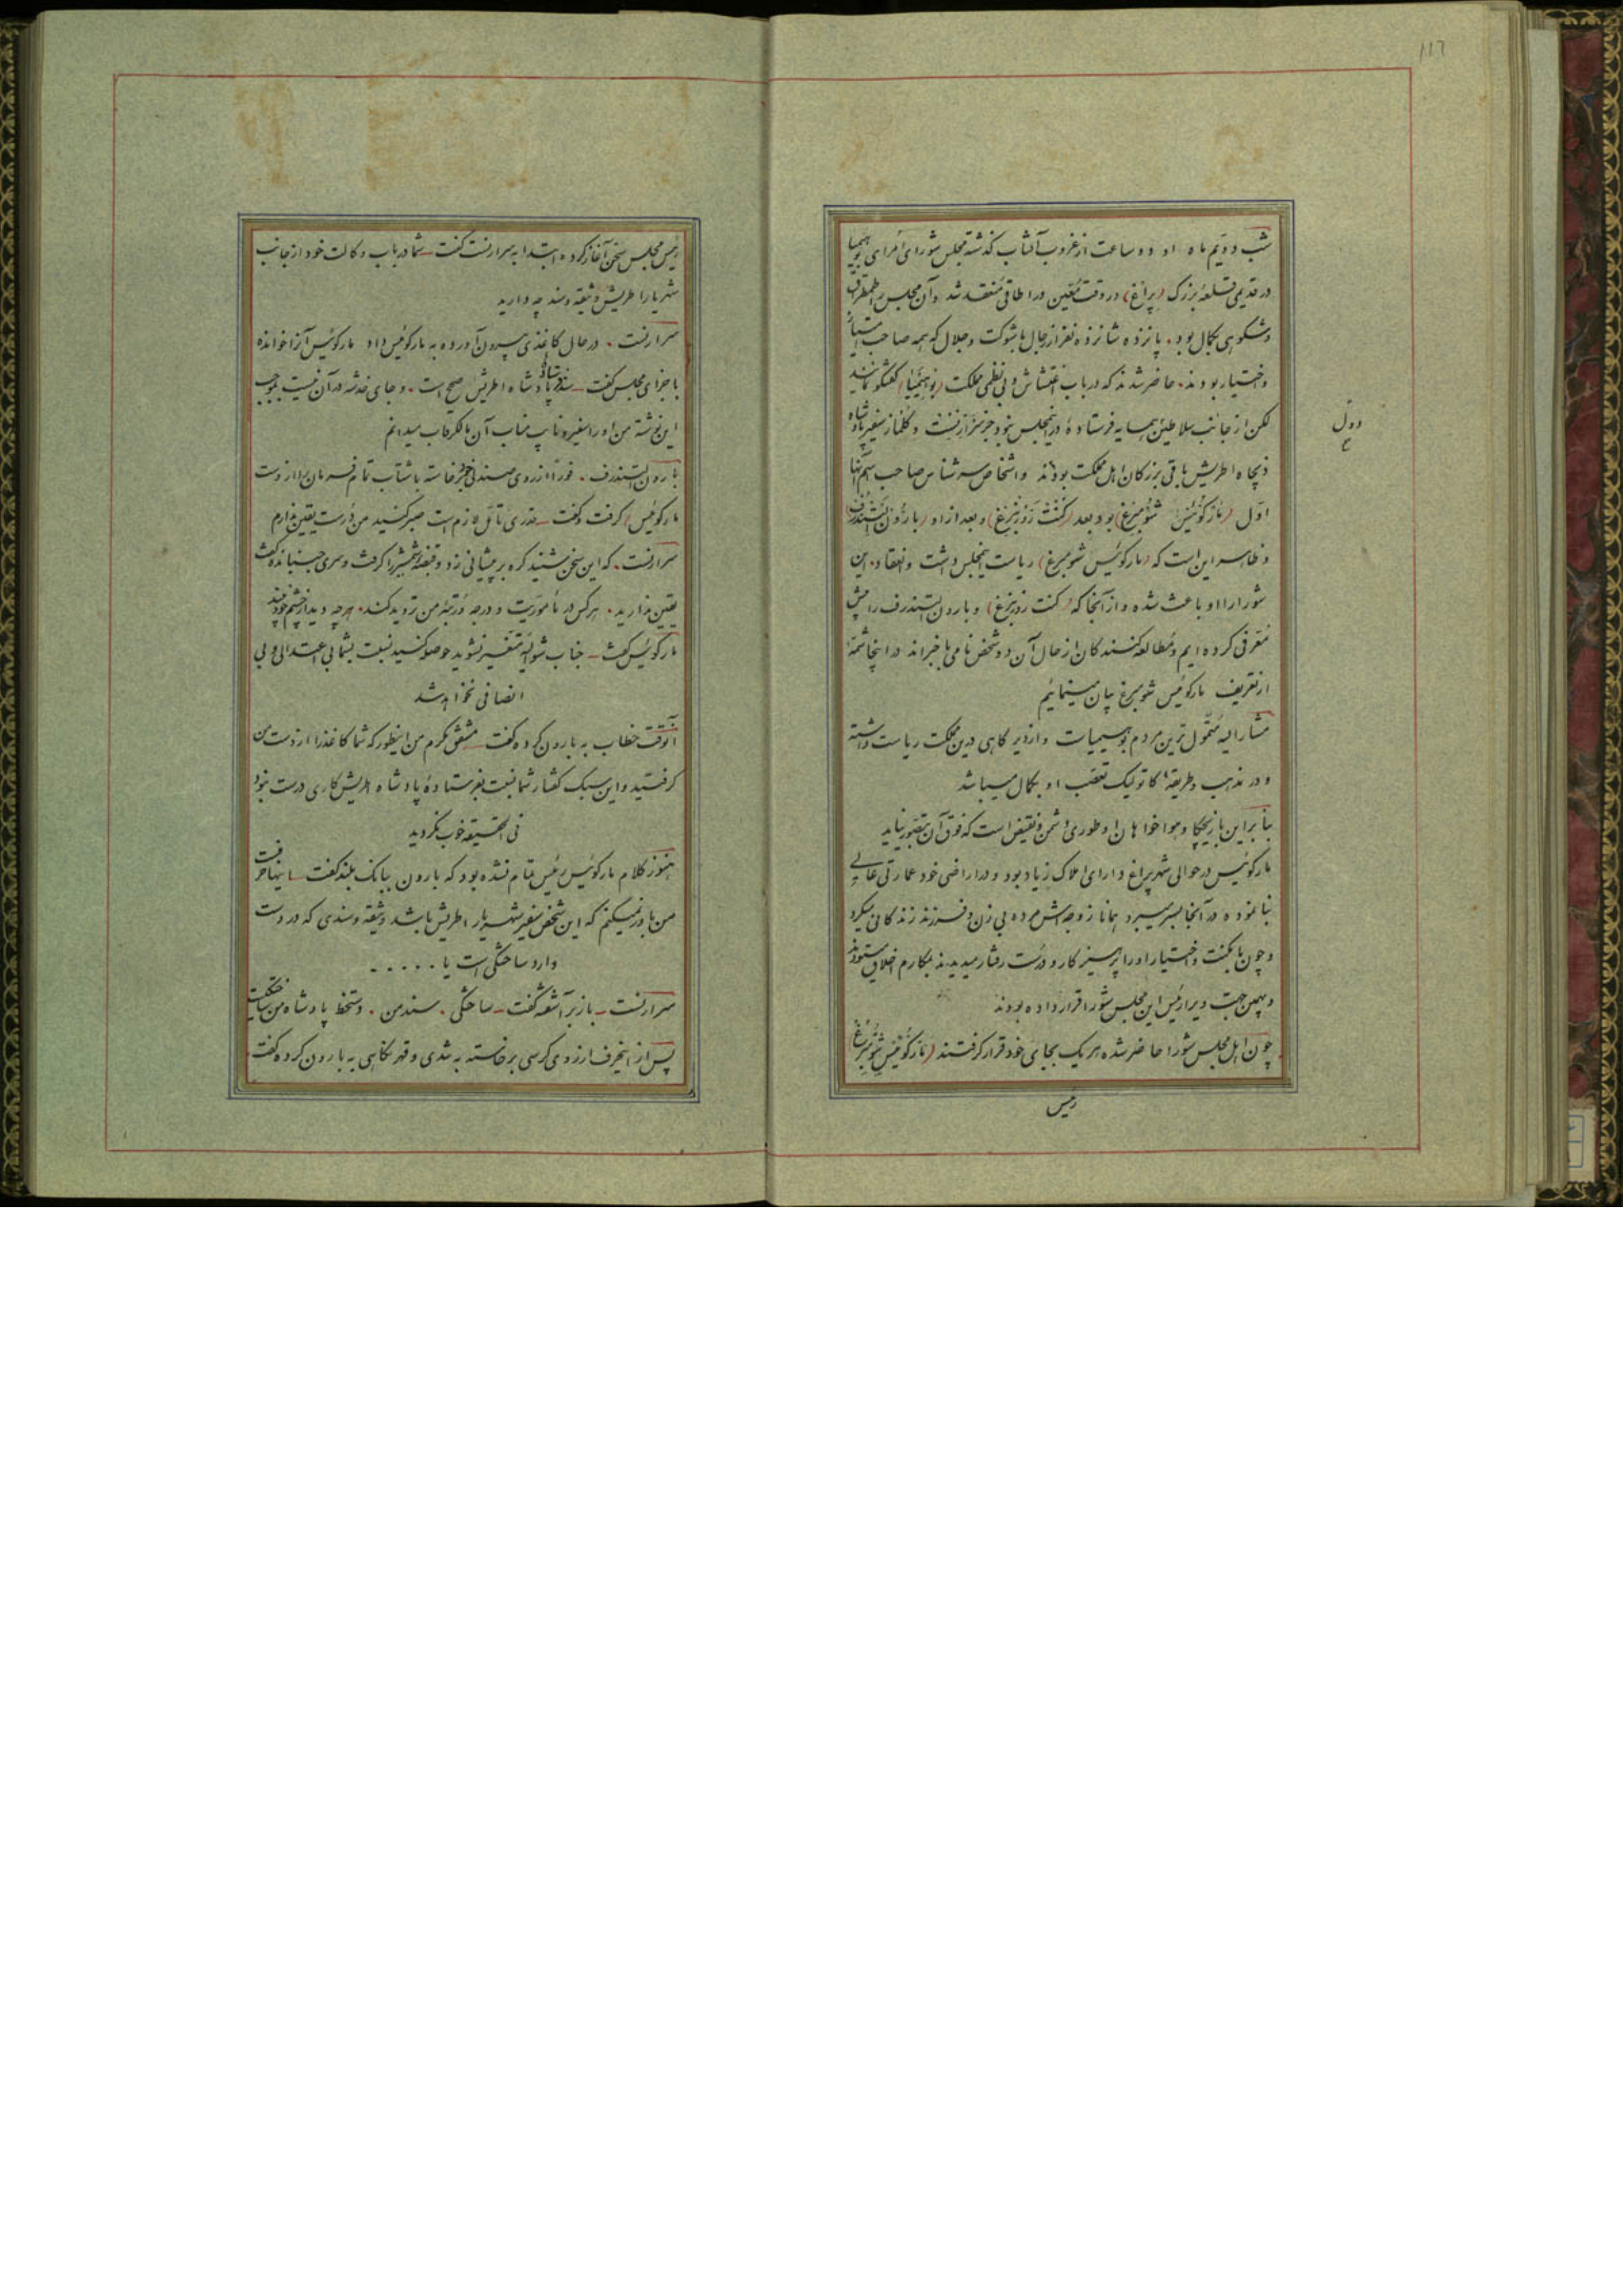 ١١٦
شب دویم ماه او دو ساعت از غروب آفتاب گذشته مجلس شورای اُمرای بوهیمیا
در قدیمی قلعهٔ بزرگ (پراغ) در وقت مُعّین در اطاقی مُنعقد شد و آن مجلس باطمطراق
و شکوهی بکمال بود. پانزده شانزده نفر از رجال باشوکت و جلال که همه صاحب امتیاز
و اختیار بودند. حاضر شدند که در باب اغتشاش و بی نظمی مملکت (بوهیمیا) گفتگو نمایند
لکن از جانب سلاطین همسایه فرستادهٔ در اینمجلس نبود جز سرارنست و گلنماز سفیر پادشاه
دول
ع
ذیجاه اطریش باقی بزرگان اهل مملکت بودند و اشخاص سرشناس صاحب اسم آنها
اوّل (مارکوئیس شومبرغ) بود بعد (کنت رُوزنبرغ) و بعد از او (بارُون لستندرف)
و ظاهر این است که (مارکوئیس شومبرغ) ریاست اینمجلس داشت و انعقاد این
شورا را او باعث شده و از آنجا که (کنت رزنبرغ) و بارون لستندرف را پیش
مُعّرفی کرده ایم و مُطالعه کنندگان از حال آن دو شخص نامی باخبراند در اینجا شمّهٔ
از تعریف مارکوئیس شومبرغ بیان مینمائیم
مشارالیه مُتموّل ترین مردم بوهیمیاست و از دیرگاهی درین مملکت ریاست داشته
و در مذهب و طریقهٔ کاتولیک تعصّب او بکمال میباشد
بنابراین با زیچکا و هواخواهان او طوری دشمن و نقیض است که فوق آن بتصّور نیاید
مارکوئیس در حوالی شهر پراغ دارای املاک زیاد بود و در اراضی خود عمارتی عالی
بنا نموده در آنجا بسر میبرد همانا زوجه اش مرده بی زن و فرزند زندگانی میکرد
و چون با مکنت و اختیار او را پرهیزکار و درست رفتار میدیدند بمکارم اخلاق میستودند
و بهمین جهت ویرا رئیس این مجلس شورا قرار داده بودند
چون اهل مجلس شورا حاضر شده هر یک بجای خود قرار گرفتند (مارکوئیس شومبرغ)
رئیس
رئیس مجلس سخن آغاز کرده ابتدا به سرارنست گفت ـ شما در باب وکالت خود از جانب
شهریار اطریش وثیقه و سند چه دارید
سرارنست . در حال کاغذی بیرون آورده به مارکوئیس داد مارکوئیس آنرا خوانده
باجزای مجلس گفت ـ سند فرستادهٔ پادشاه اطریش صحیح است . و جای خدشه در آن نیست بموجب
این نوشته من او را سفیر و نایب مناب آن مالکرقاب میدانم
بارون لستندرف . فوراً از روی صندلی خود برخاسته باشتاب تمام فرمان را از دست
مارکوئیس) گرفت و گفت ـ قدری تأمّل لازم است صبر کنید من دُرست یقین ندارم
سرارنست . که این سخن شنید گره بر پیشانی زد و قبضهٔ شمشیر را گرفت و سری جنبانده گفت
یقین ندارید . هرکس در مأموریّت و درجه و رُتبهٔ من تردید کند . هرچه دید از چشم خود دید
مارکوئیس گفت ـ جناب شوالیه متغیّر نشوید حوصله کنید نسبت بشما بی اعتدالی و بی
انصافی نخواهد شد
آنوقت خطاب به بارون کرده گفت ـ مشفق مکرم من اینطور که شما کاغذ را از دست من
گرفتید و این سبک گفتار شما نسبت بفرستادهٔ پادشاه اطریش کاری درست نبود
فی الحقیقه خوب نکردید
هنوز کلام مارکوئیس رئیس تمام نشده بود که بارون ببانک بلند گفت ـ اینها حرفست
من باور نمیکنم که این شخص سفیر شهریار اطریش باشد وثیقه و سندی که در دست
دارد ساختگی است یا . . . . .
سرارنست ـ باز برآشفته گفت ـ ساختگی . سند من . دستخط پادشاه من ساختگیست
پس از اینحرف از روی کرسی برخاسته به تندی و قهر نگاهی به بارون کرده گفت